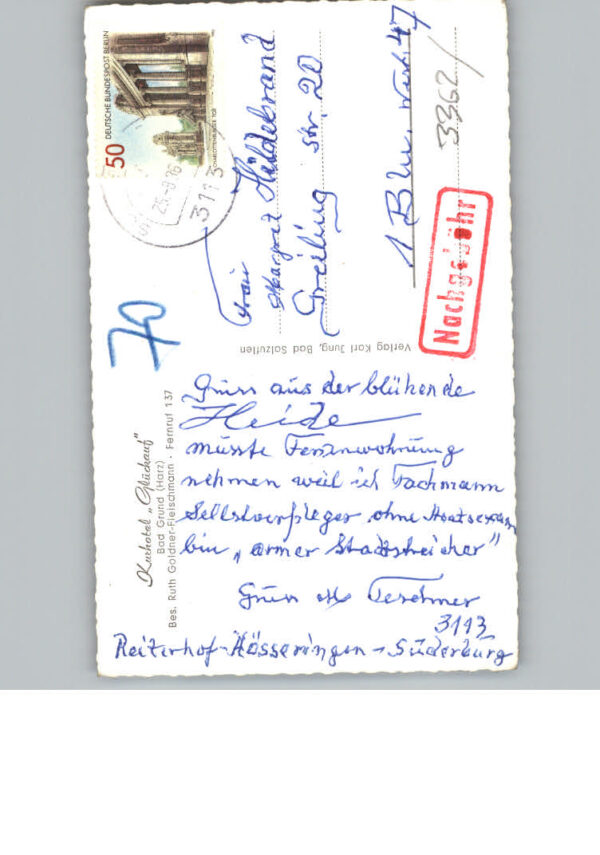 Kurhotel „Glückauf"
Bad Grund (Harz)
Bes. Ruth Goldner-Fleischmann · Fernruf 137
DEUTSCHE BUNDESPOST BERLIN
50
CHARLOTTENBURGER TOR
3113
70
Frau
Margret Hildebrand
Greiling str. 20
1 Bln. 47
3362/
Nachgebühr
Verlag Karl Jung, Bad Salzuflen
Gruss aus der blühende
Heide
musste Ferienwohnung
nehmen weil ich Fachmann
Selbstverpfleger ohne
bin „armer Stadtstreicher"
Gruss
3113
Reiterhof-Hösseringen - Suderburg